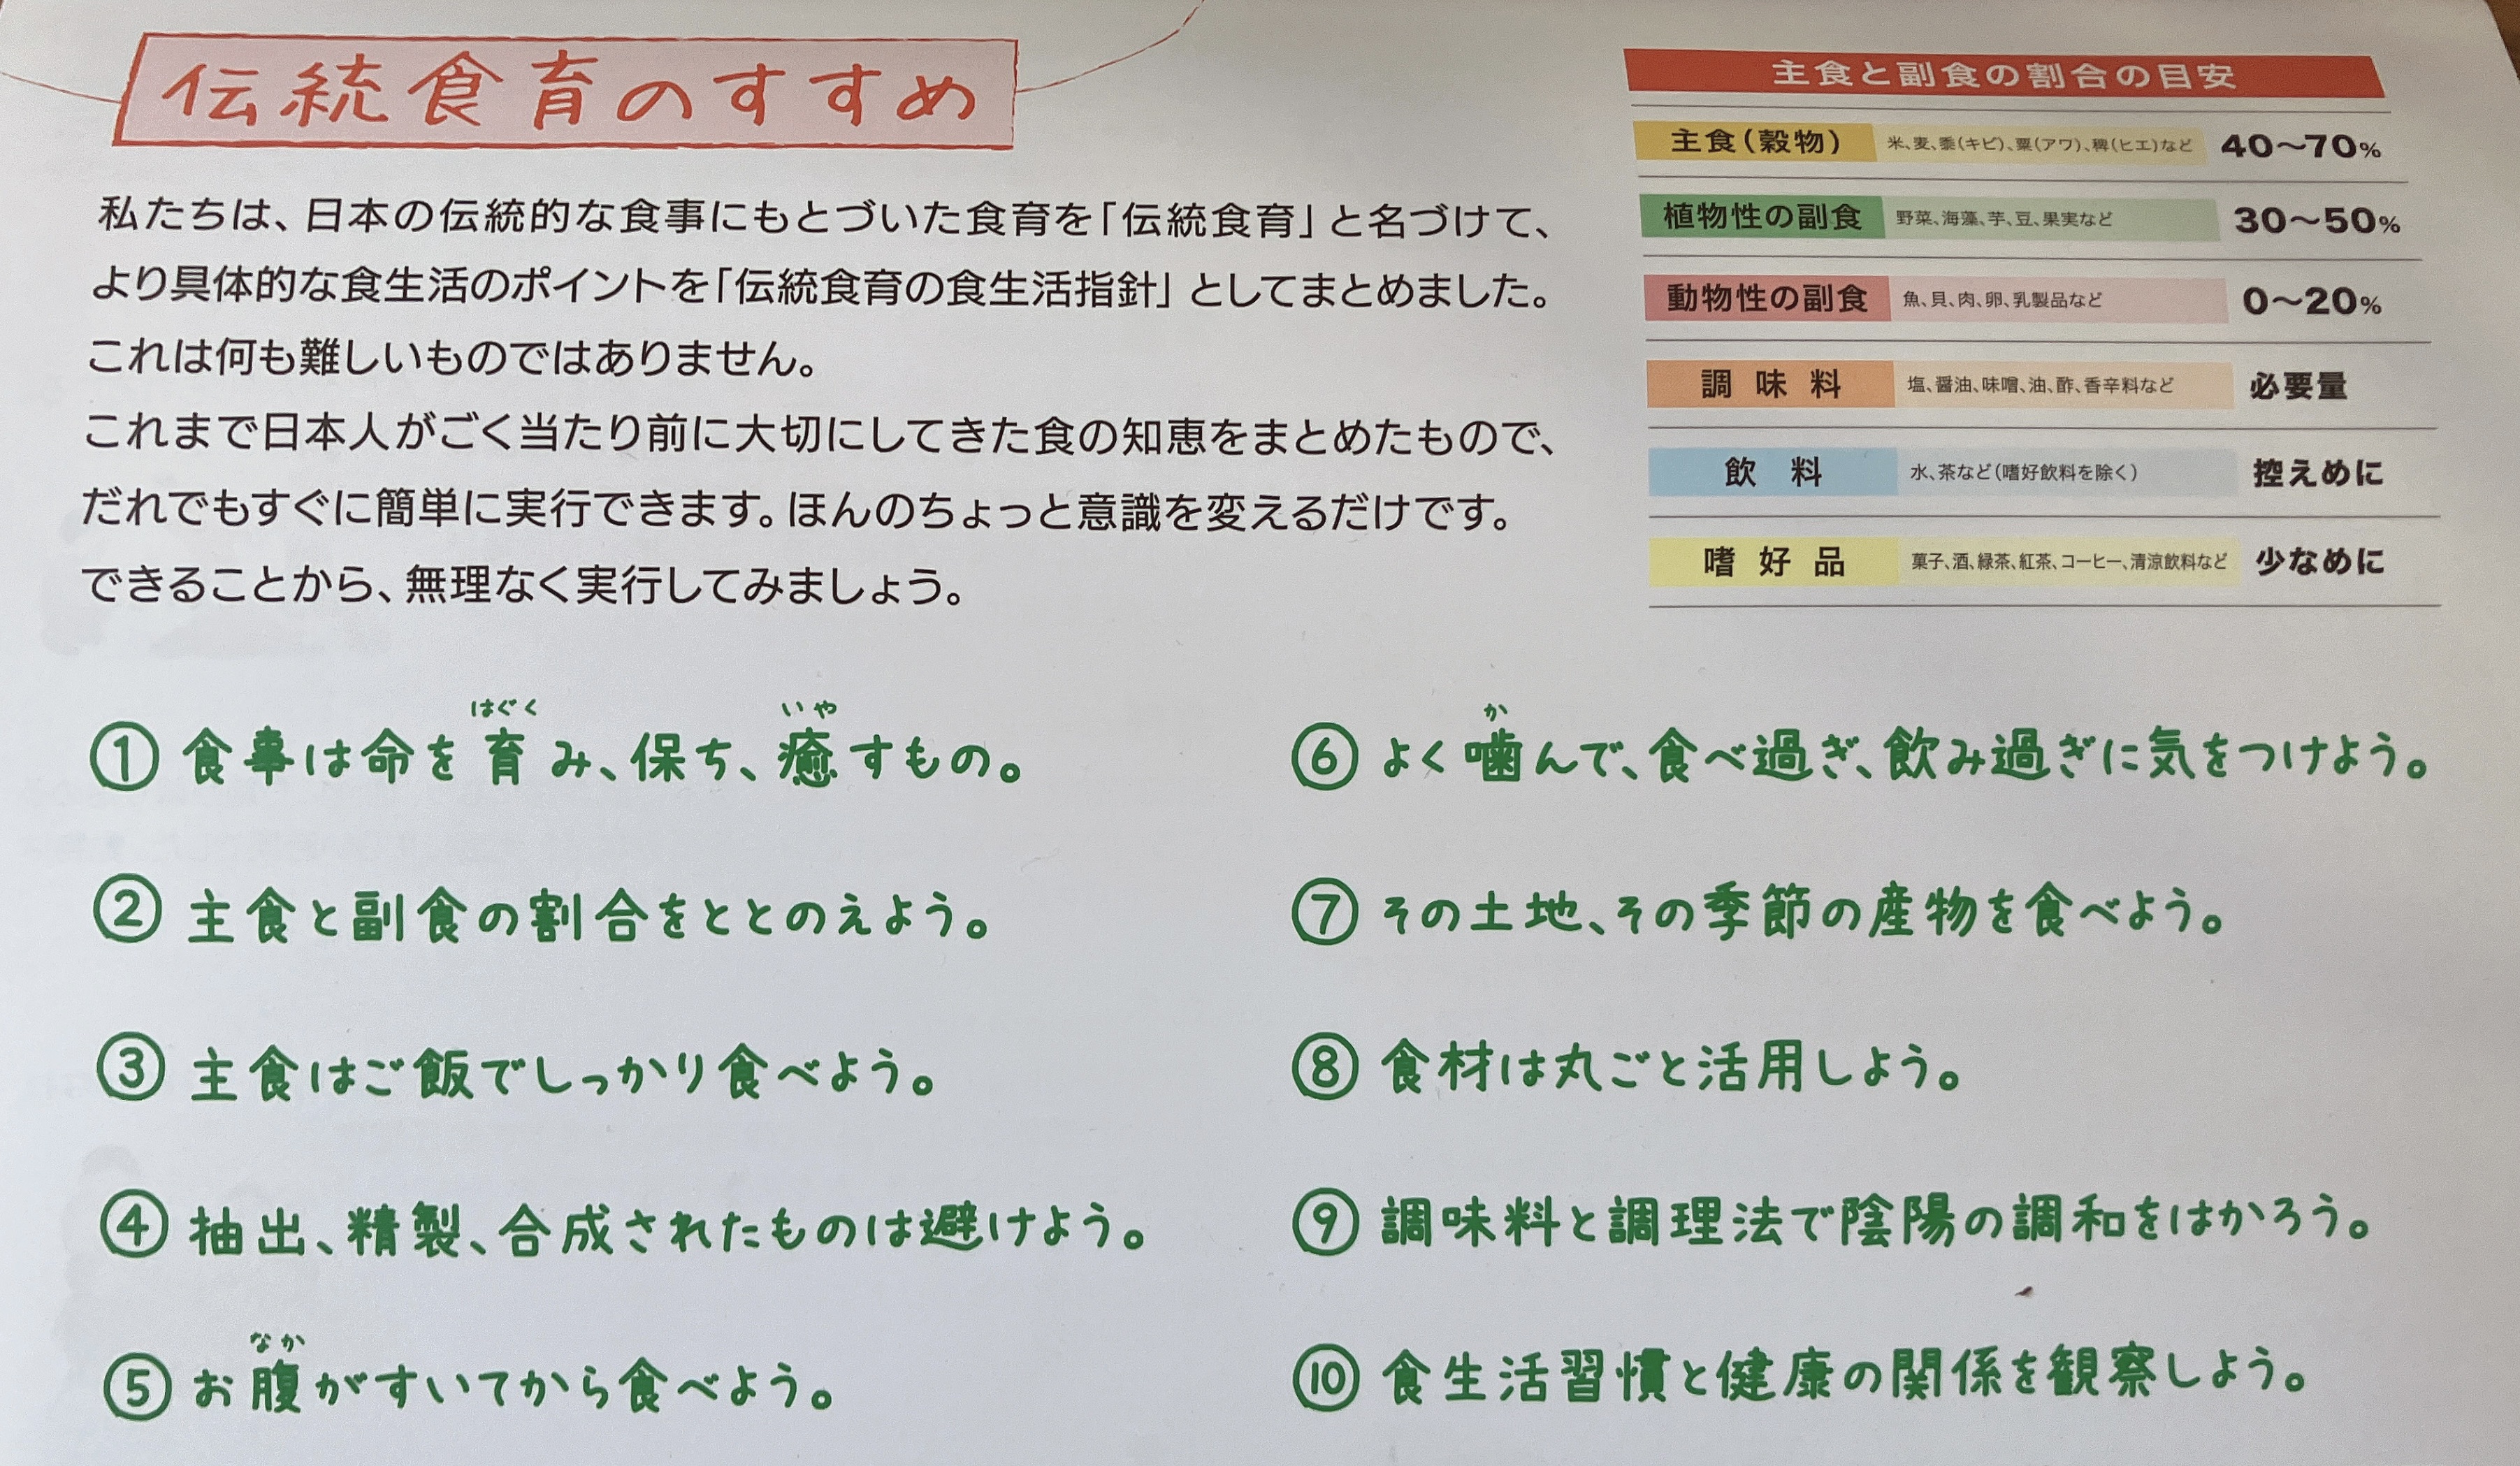 伝統食育のすすめ
私たちは、日本の伝統的な食事にもとづいた食育を「伝統食育」と名づけて、
より具体的な食生活のポイントを「伝統食育の食生活指針」としてまとめました。
これは何も難しいものではありません。
これまで日本人がごく当たり前に大切にしてきた食の知恵をまとめたもので、
だれでもすぐに簡単に実行できます。ほんのちょっと意識を変えるだけです。
できることから、無理なく実行してみましょう。
主食と副食の割合の目安
主食(穀物) 米、麦、黍(キビ)、粟(アワ)、稗(ヒエ)など 40〜70%
植物性の副食 野菜、海藻、芋、豆、果実など 30〜50%
動物性の副食 魚、貝、肉、卵、乳製品など 0〜20%
調味料 塩、醤油、味噌、油、酢、香辛料など 必要量
飲料 水、茶など(嗜好飲料を除く) 控えめに
嗜好品 菓子、酒、緑茶、紅茶、コーヒー、清涼飲料など 少なめに
はぐく いや
① 食事は命を育み、保ち、癒すもの。
② 主食と副食の割合をととのえよう。
③ 主食はご飯でしっかり食べよう。
④ 抽出、精製、合成されたものは避けよう。
なか
⑤ お腹がすいてから食べよう。
か
⑥ よく噛んで、食べ過ぎ、飲み過ぎに気をつけよう。
⑦ その土地、その季節の産物を食べよう。
⑧ 食材は丸ごと活用しよう。
⑨ 調味料と調理法で陰陽の調和をはかろう。
⑩ 食生活習慣と健康の関係を観察しよう。